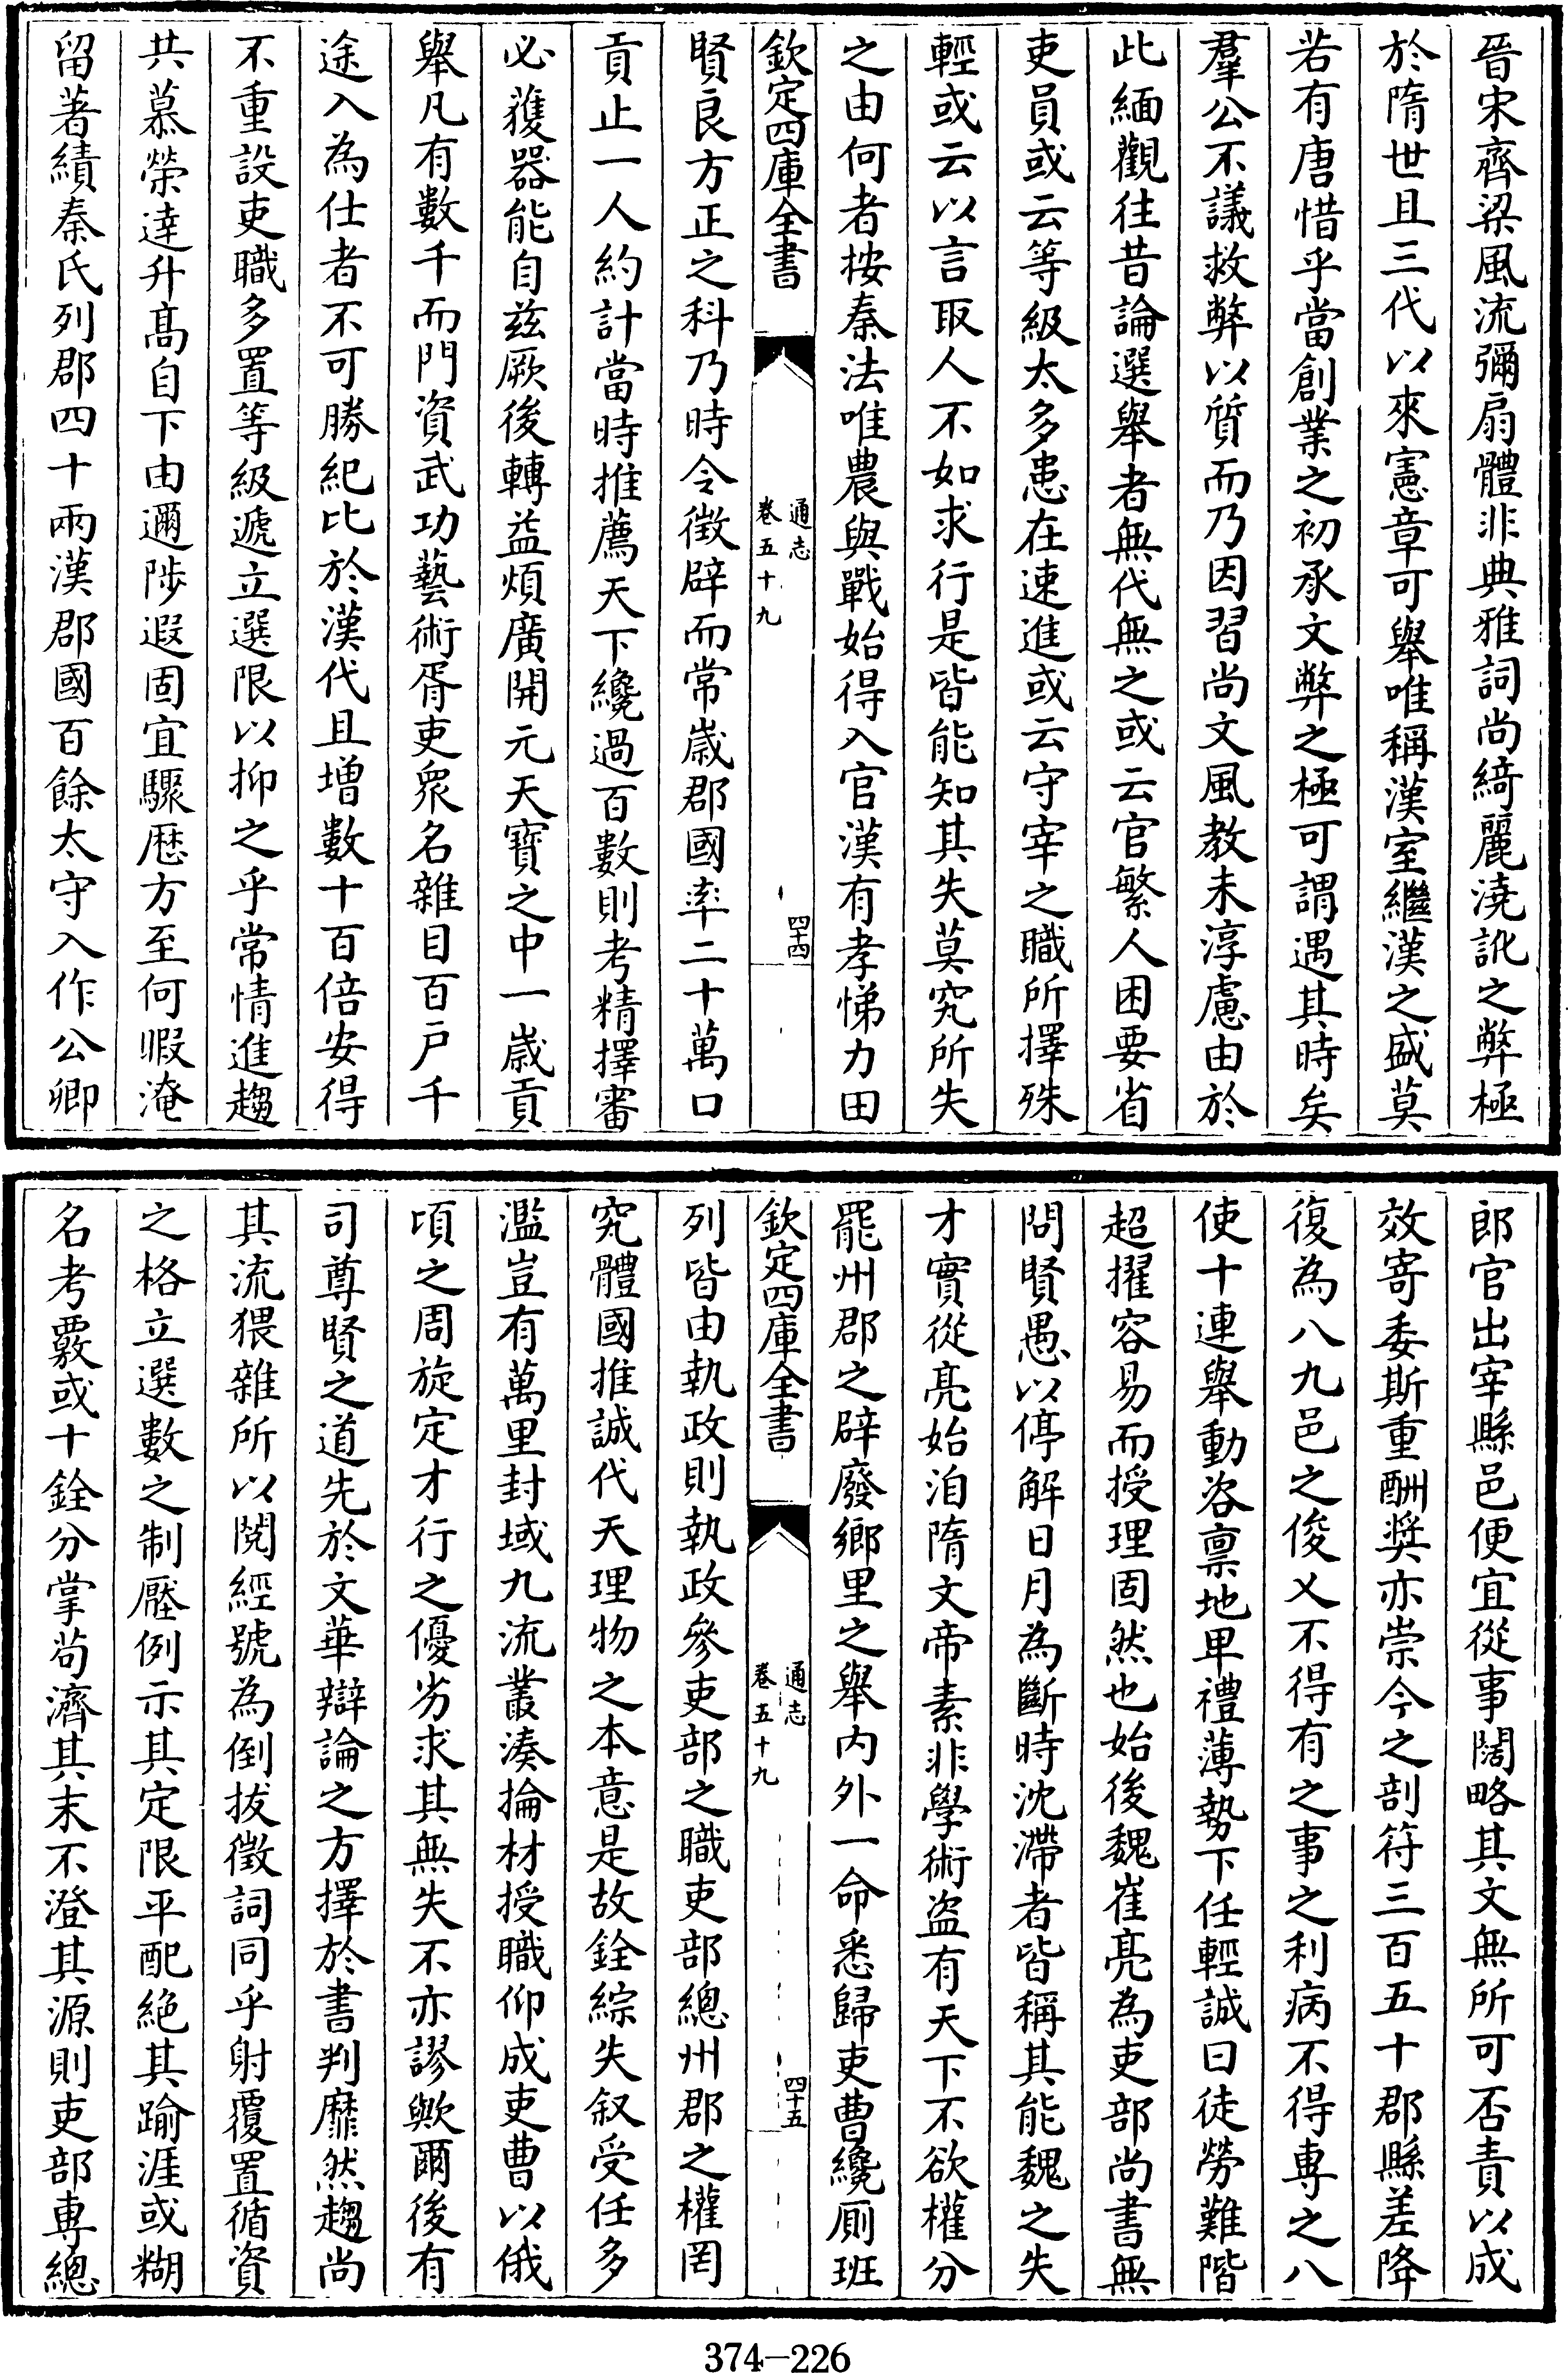 晉宋齊梁風流彌扇體非典雅詞尚綺麗澆訛之弊極
於隋世且三代以來憲章可舉唯稱漢室繼漢之盛莫
若有唐惜乎當創業之初承文弊之極可謂遇其時矣
羣公不議救弊以質而乃因習尚文風教未淳慮由於
此緬觀往昔論選舉者無代無之或云官繁人困要省
吏員或云等級太多患在速進或云守宰之職所擇殊
輕或云以言取人不如求行是皆能知其失莫究所失
之由何者按秦法唯農與戰始得入官漢有孝悌力田
欽定四庫全書
通志
卷五十九
四十四
賢良方正之科乃時令徵辟而常歲郡國率二十萬口
貢止一人約計當時推薦天下纔過百數則考精擇審
必獲器能自茲厥後轉益煩廣開元天寶之中一歲貢
舉凡有數千而門資武功藝術胥吏衆名雜目百戶千
途入為仕者不可勝紀比於漢代且增數十百倍安得
不重設吏職多置等級遞立選限以抑之乎常情進趨
共慕榮達升髙自下由邇陟遐固宜驟歷方至何暇淹
留著績秦氏列郡四十兩漢郡國百餘太守入作公卿
郎官出宰縣邑便宜從事闊略其文無所可否責以成
效寄委斯重酬奬亦崇今之剖符三百五十郡縣差降
復為八九邑之俊乂不得有之事之利病不得專之八
使十連舉動咨禀地卑禮薄勢下任輕誠曰徒勞難階
超擢容易而授理固然也始後魏崔亮為吏部尚書無
問賢愚以停解日月為斷時沈滯者皆稱其能魏之失
才實從亮始洎隋文帝素非學術盜有天下不欲權分
罷州郡之辟廢鄉里之舉內外一命悉歸吏曹纔厠班
欽定四庫全書
通志
卷五十九
四十五
列皆由執政則執政參吏部之職吏部總州郡之權罔
究體國推誠代天理物之本意是故銓綜失叙受任多
濫豈有萬里封域九流叢湊掄材授職仰成吏曹以俄
頃之周旋定才行之優劣求其無失不亦謬歟爾後有
司尊賢之道先於文華辯論之方擇於書判靡然趨尚
其流猥雜所以閱經號為倒拔徵詞同乎射覆置循資
之格立選數之制壓例示其定限平配絕其踰涯或糊
名考覈或十銓分掌苟濟其末不澄其源則吏部專總
374—226